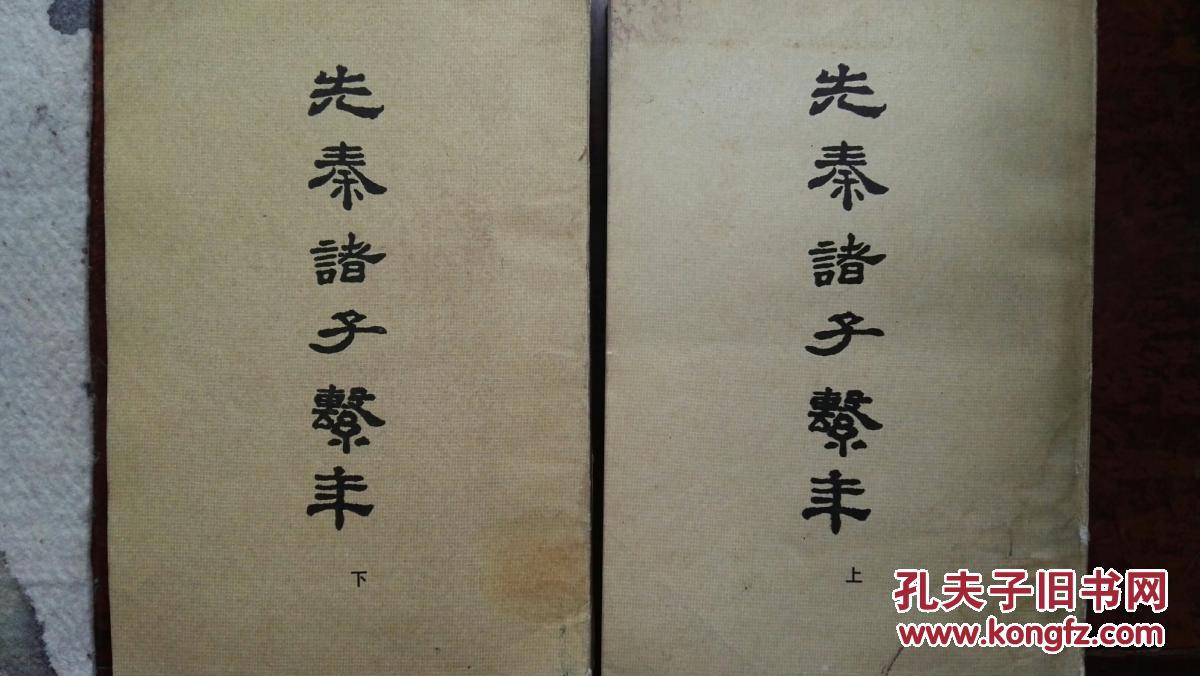 先秦諸子繫年
上
先秦諸子繫年
下
孔夫子旧书网
www.kongfz.com